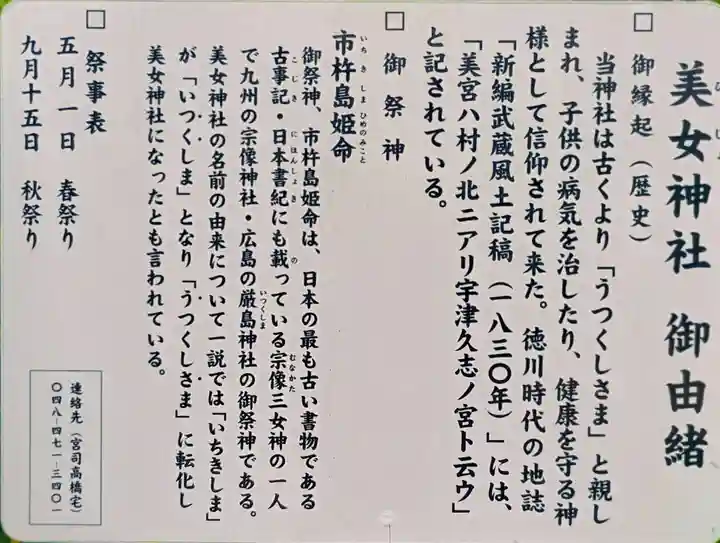 美女神社 御由緒
□ 御縁起(歴史)
当神社は古くより「うつくしさま」と親し
まれ、子供の病気を治したり、健康を守る神
様として信仰されて来た。徳川時代の地誌
「新編武蔵風土記稿(一八三〇年)」には、
「美宮ハ村ノ北ニアリ宇津久志ノ宮ト云ウ」
と記されている。
□ 御祭神
市杵島姫命
いちきしまひめのみこと
御祭神、市杵島姫命は、日本の最も古い書物である
古事記・日本書紀にも載っている宗像三女神の一人
こじき にほんしょき の むなかた
で九州の宗像神社・広島の厳島神社の御祭神である。
いつくしま
美女神社の名前の由来について一説では「いちきしま」
が「いつくしま」となり「うつくしさま」に転化し
美女神社になったとも言われている。
□ 祭事表
五月一日 春祭り
九月十五日 秋祭り
連絡先(宮司高橋宅)
〇四八-四七一-三四〇一